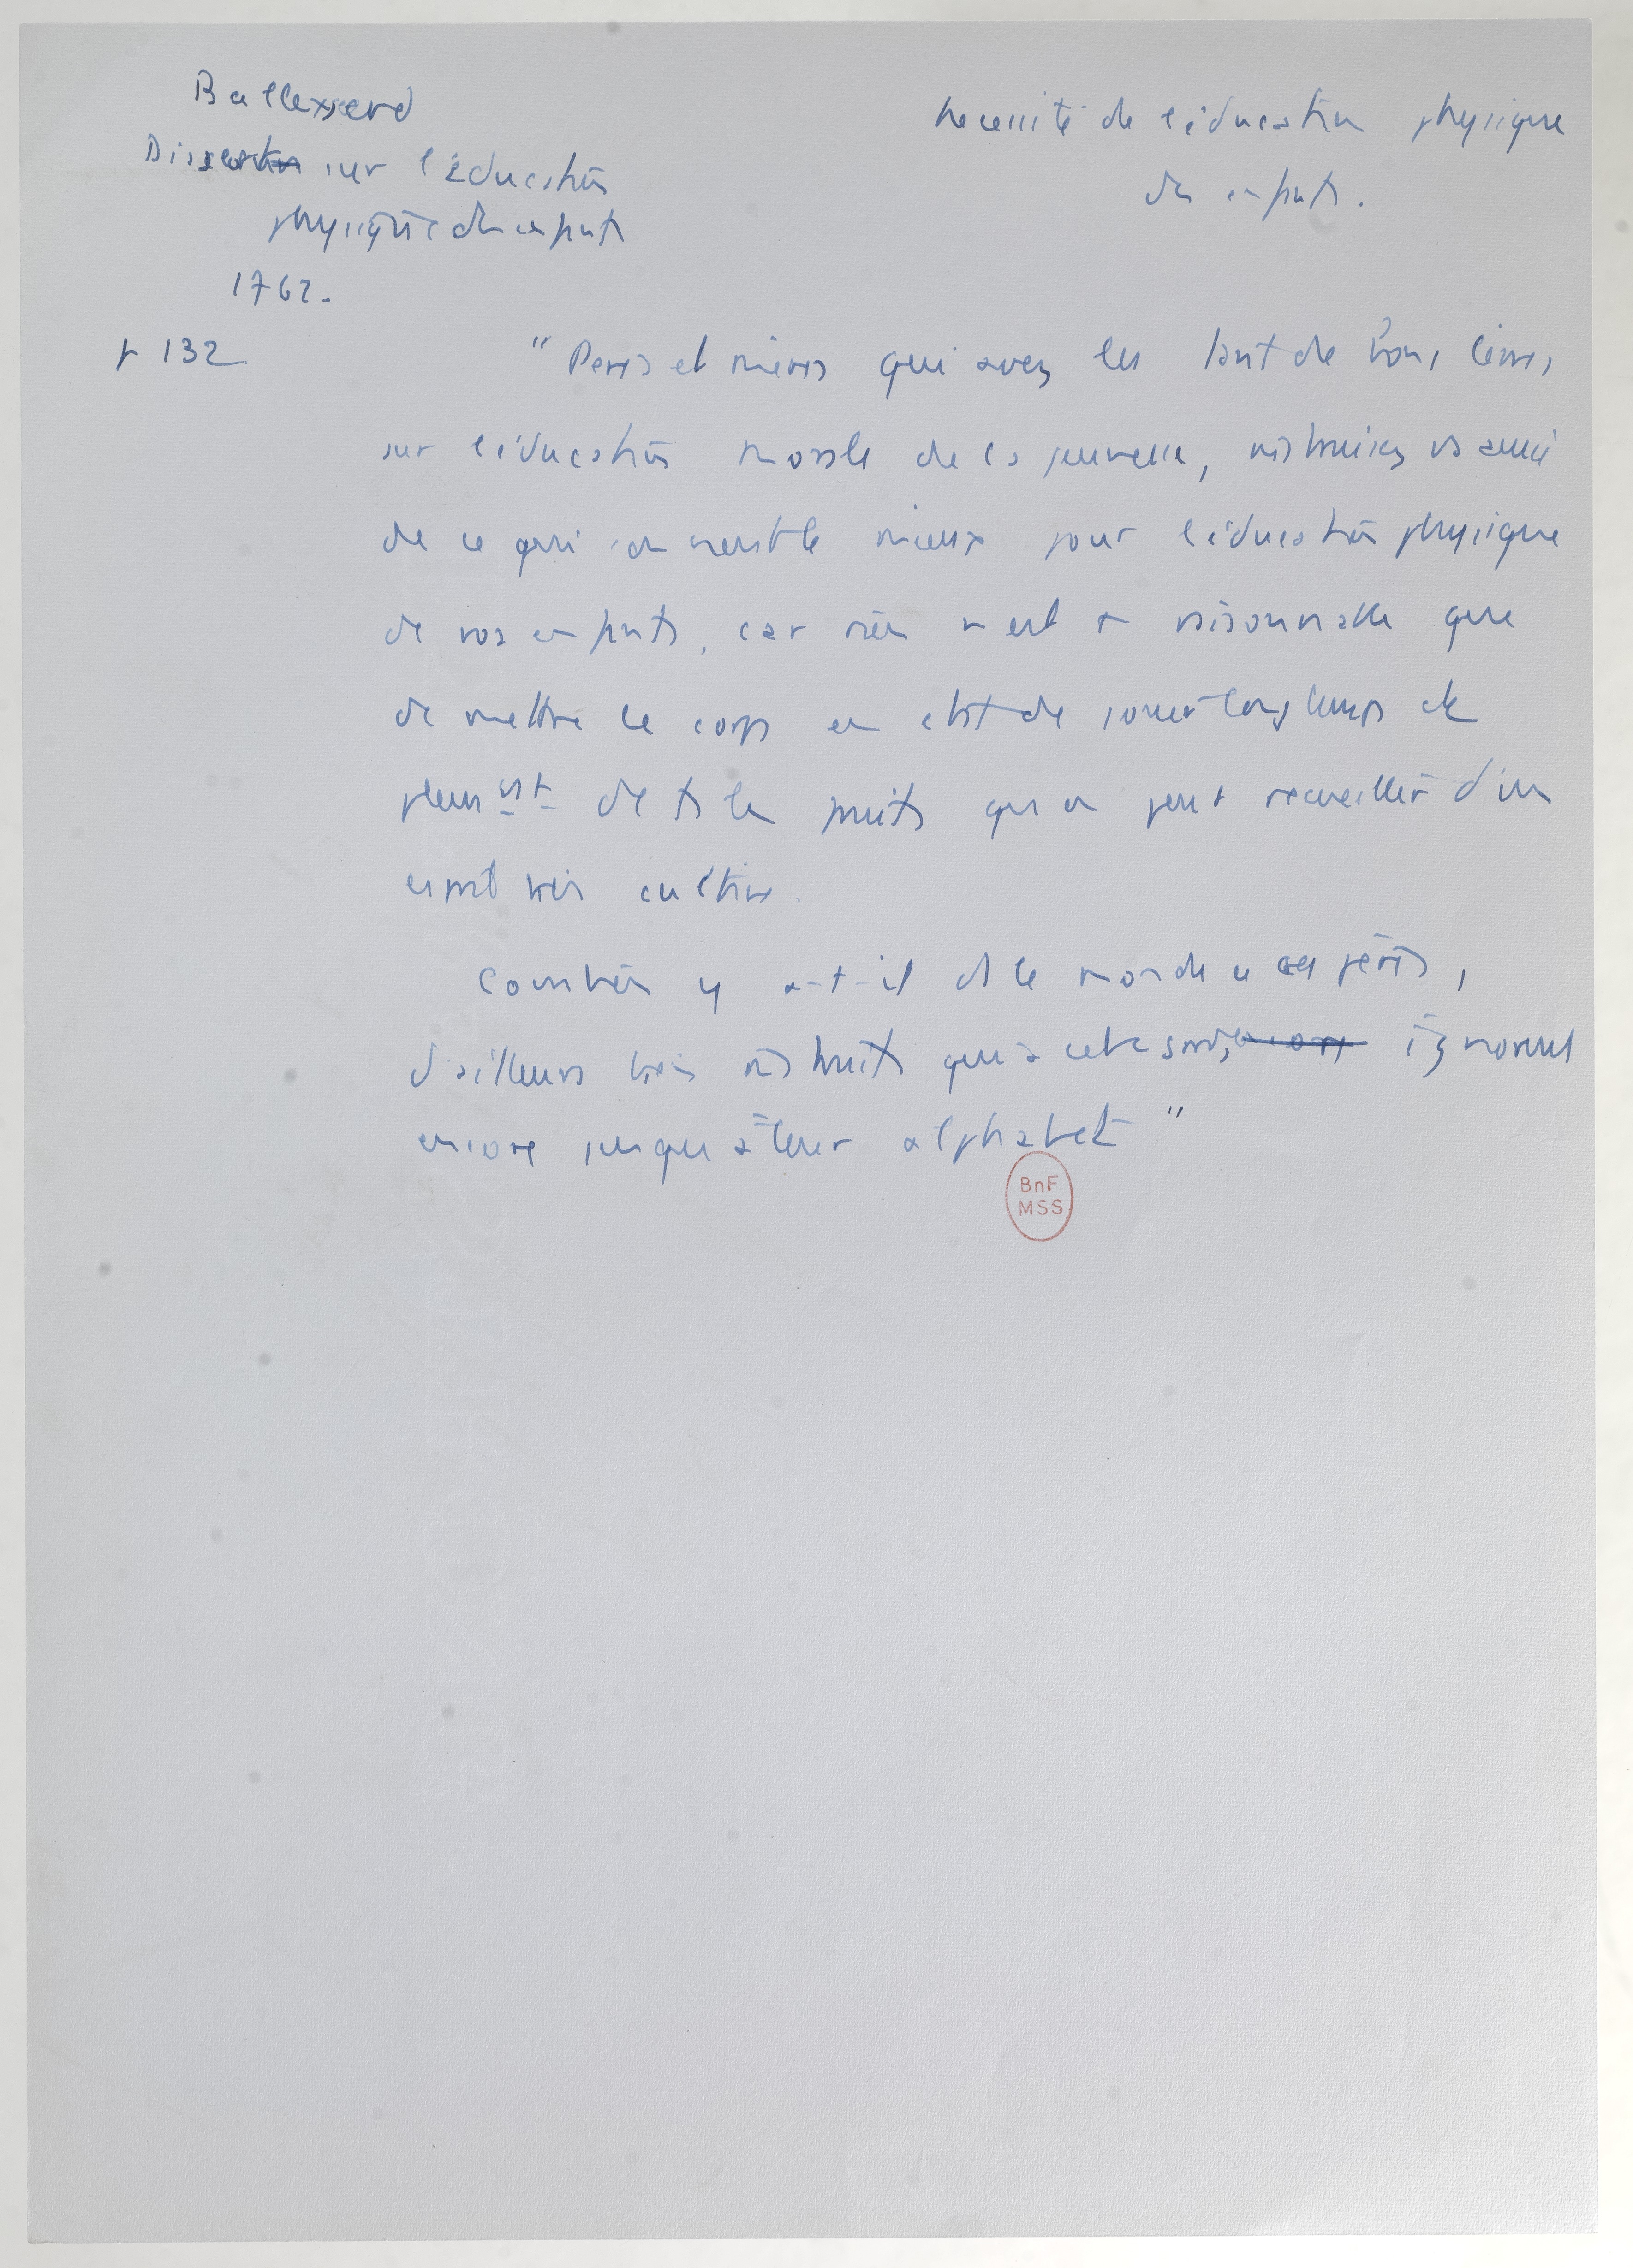 Ballexserd
Dissertn sur l'éducation
physique des enfants
1762.
Necessité de l'éducation physique
des enfants.
p 132
"Peres et mères qui avez lu tant de bons livres
sur l'éducation morale de la jeunesse, instruisez vs aussi
de ce qui convient le mieux pour l'éducation physique
de vos enfants, car rien n'est + raisonnable que
de mettre le corps en état de jouir longtemps et
pleinemt de ts les fruits qu'on peut recueillir d'un
esprit bien cultivé.
Combien y a-t-il ds le monde de ces pères,
d'ailleurs bien instruits qui à cet égard ignorent
encore jusqu'à leur alphabet"
BnF
MSS